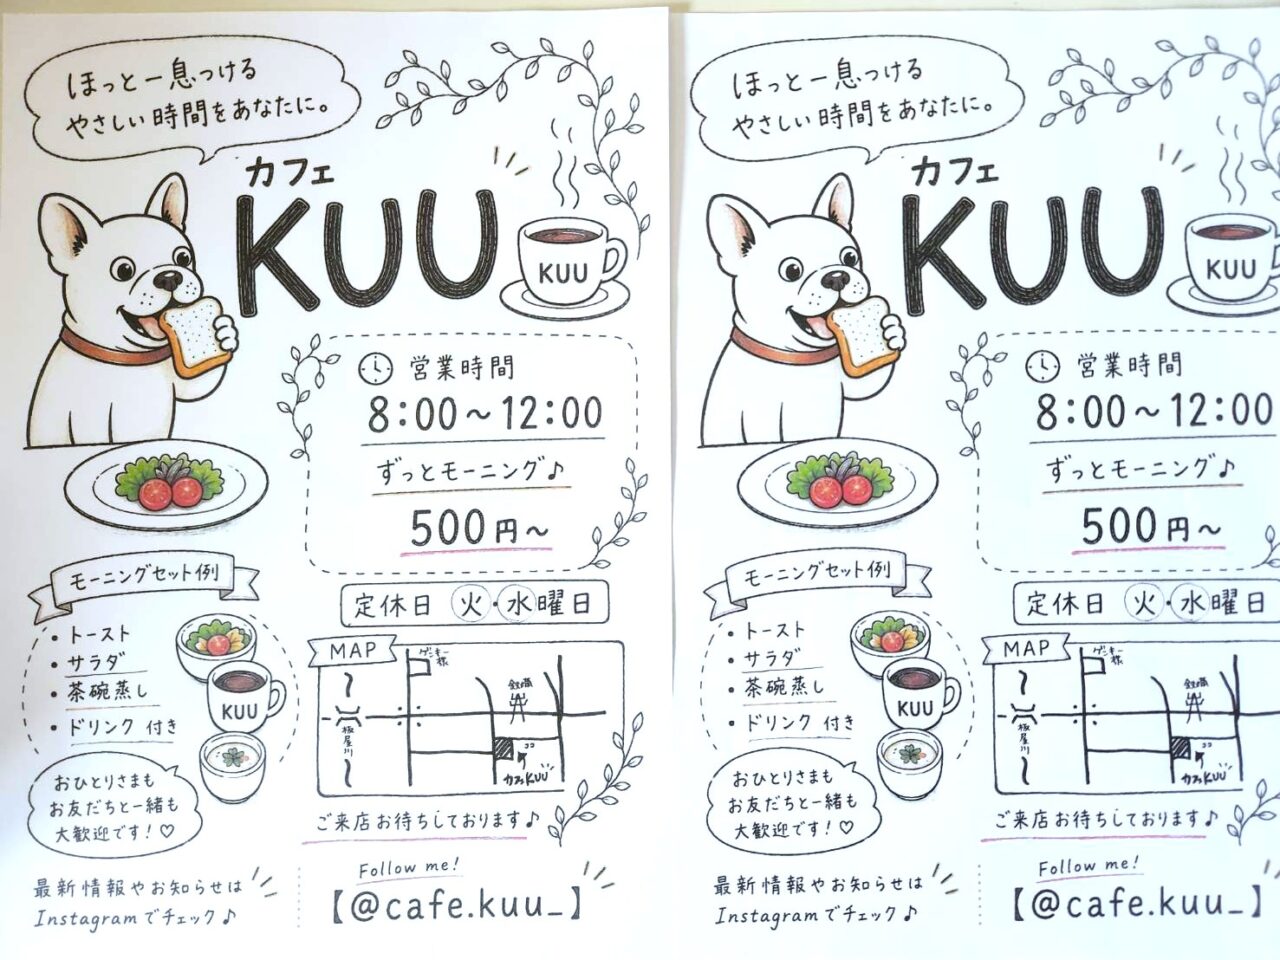 ほっと一息つける
やさしい時間をあなたに。
カフェ
KUU
KUU
営業時間
8:00～12:00
ずっとモーニング♪
500円～
モーニングセット例
• トースト
• サラダ
• 茶碗蒸し
• ドリンク 付き
KUU
定休日 火・水曜日
MAP
ゲンキー様
鉄塔
板屋川
ココ
カフェKUU
おひとりさまも
お友だちと一緒も
大歓迎です！♡
ご来店お待ちしております♪
最新情報やお知らせは
Instagramでチェック♪
Follow me!
【@cafe.kuu_】
ほっと一息つける
やさしい時間をあなたに。
カフェ
KUU
KUU
営業時間
8:00～12:00
ずっとモーニング♪
500円～
モーニングセット例
• トースト
• サラダ
• 茶碗蒸し
• ドリンク 付き
KUU
定休日 火・水曜日
MAP
ゲンキー様
鉄塔
板屋川
ココ
カフェKUU
おひとりさまも
お友だちと一緒も
大歓迎です！♡
ご来店お待ちしております♪
最新情報やお知らせは
Instagramでチェック♪
Follow me!
【@cafe.kuu_】